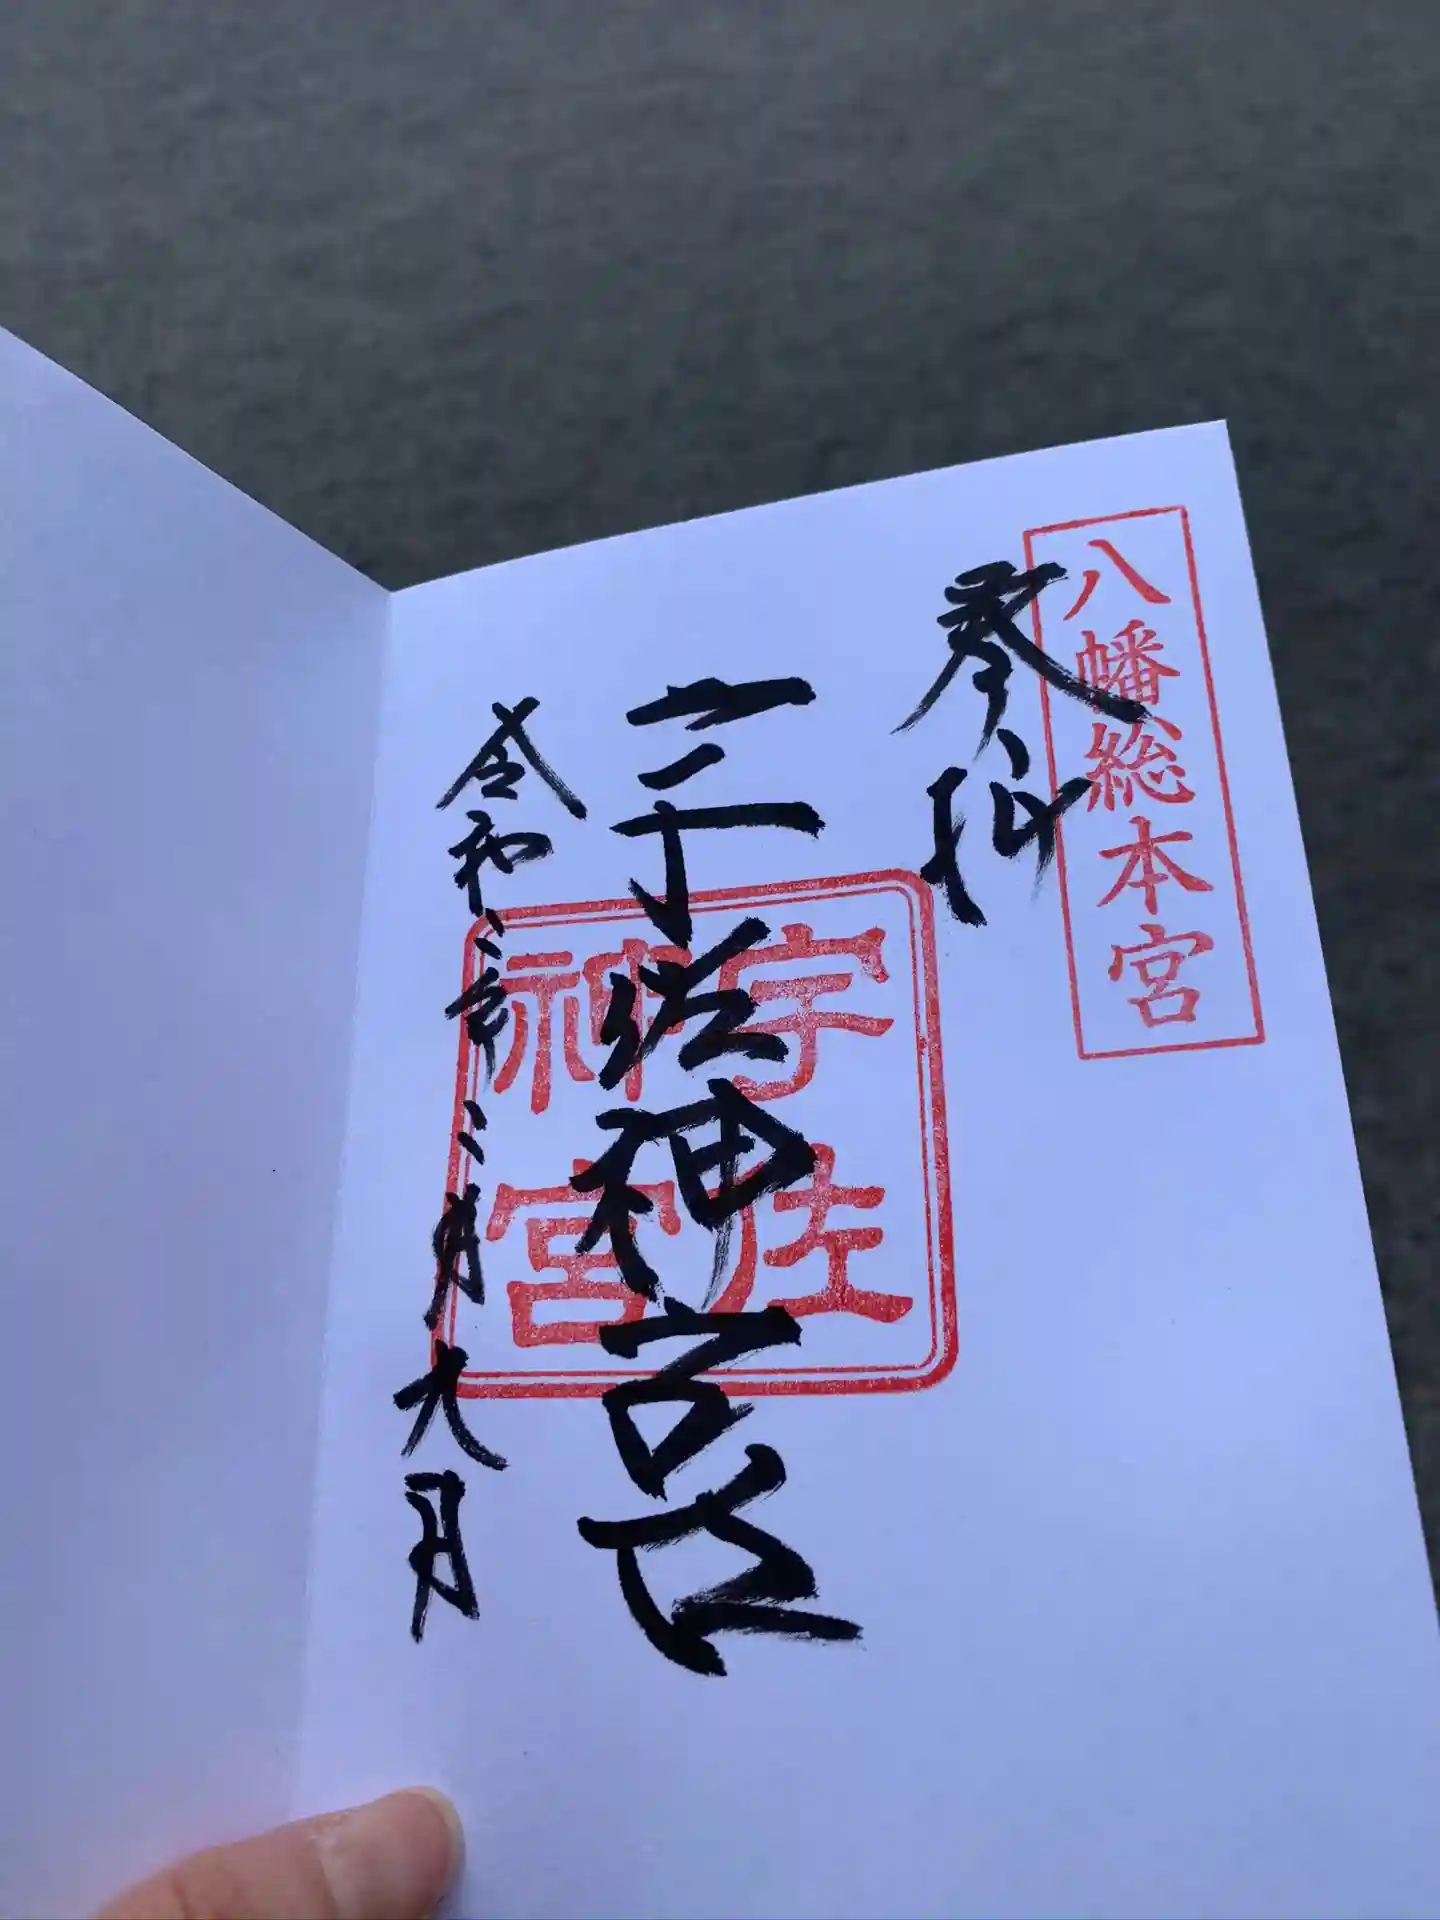 八幡総本宮
奉拝
宇佐神宮
宇佐神宮
令和二年二月九日